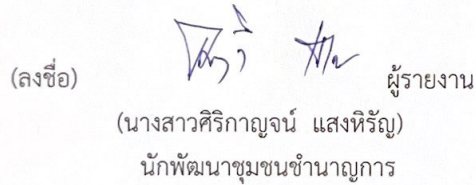 (ลงชื่อ) ผู้รายงาน
(นางสาวศิริกาญจน์ แสงหิรัญ)
นักพัฒนาชุมชนชำนาญการ